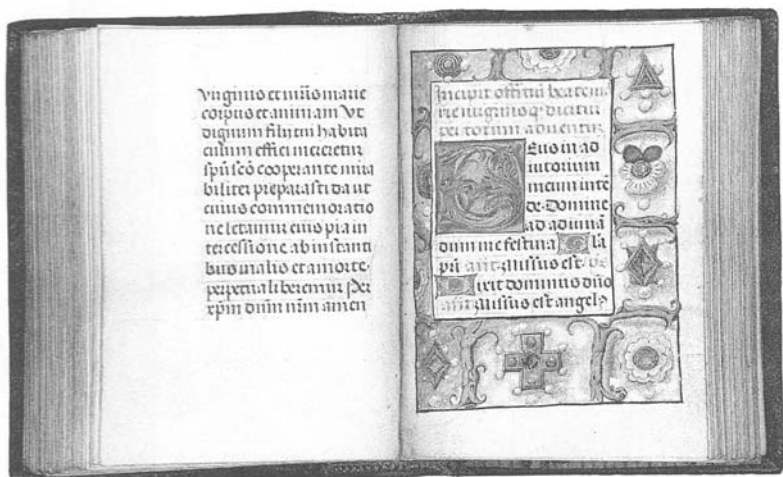 virginis et mr̃is marie
corpus et animam Vt
dignum filii tui habita
culum effici mereretur
spũ scõ cooperante mira
biliter preparasti da ut
cuius commemoratio
ne letamur eius pia in
tercessione ab instanti
bus malis et a morte
perpetua liberemur Per
xp̃m dñm nr̃m amen
Incipit offitiũ beate ma
rie virginis q dicitur
per totum aduentũ
Eus in ad
iutorium
meum intẽ
de Domine
ad adiuuã
dum me festina la
pr̃i añt Missus est ps
ixit dominus dño
añt Missus est angelꝰ